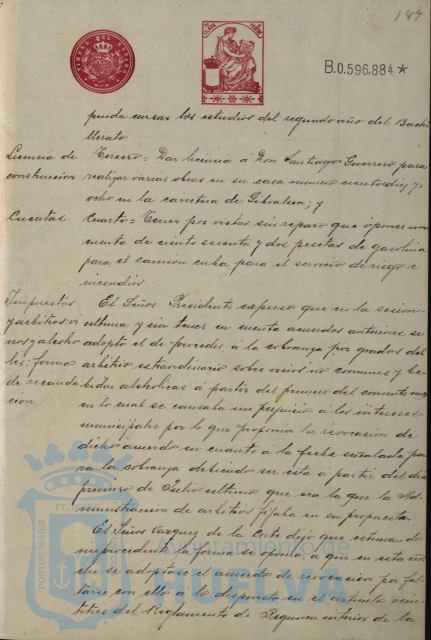 189
B.0.596.884 *
pueda cursar los estudios del segundo año del Bachi
llerato
Licencia de
construccion
Tercero = Dar licencia á Don Santiago Guerrero para
realizar varias obras en su casa numero ciento diez y
ocho en la carretera de Gibraleon; y
Cuentas
Cuarto = Tener por vistas sin reparo que oponer una
cuenta de ciento sesenta y dos pesetas de gasolina
para el camion cuba para el servicio de riego e
incendios
Impuestos
y arbitrios: vi
nos y alcoho
les; forma
de recauda
cion.
El Señor Presidente expresó que en la sesion
ultima y sin tener en cuenta acuerdos anteriores se
adoptó el de proceder á la cobranza por grados del
arbitrio extraordinario sobre vinos no comunes y be
bidas alcoholicas á partir del primero del corriente mes
en lo cual se causaba un perjuicio á los intereses
municipales por lo que proponia la revocacion de
dicho acuerdo en cuanto á la fecha señalada pa
ra la cobranza debiendo ser esta á partir del dia
primero de Julio ultimo que era la que la Ad
ministracion de arbitrios fijaba en su propuesta.
El Señor Vazquez de la Corte dijo que estimando
improcedente la forma se oponia á que en esta no
che se adoptase el acuerdo de revocacion por fal
tarse con ello á lo dispuesto en el articulo vein
titres del Reglamento de Regimen interior de la
PORTUS MARIS ET
Ayuntamiento de
HUELVA